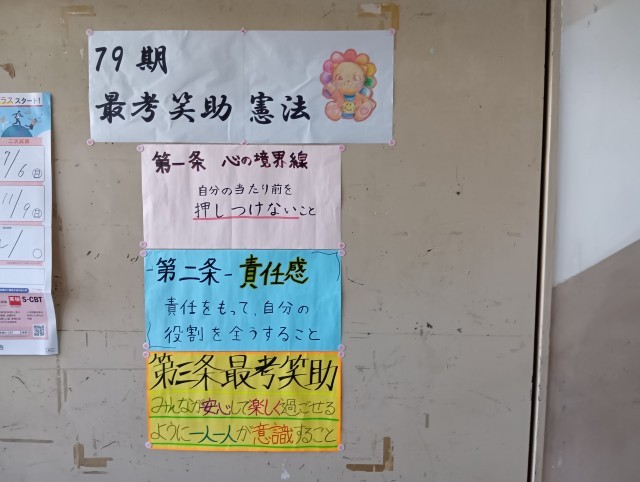 79期
最考笑助 憲法
第一条 心の境界線
自分の当たり前を
押しつけないこと
-第二条- 責任感
責任をもって、自分の
役割を全うすること
第三条 最考笑助
みんなが安心して楽しく過ごせる
ように一人一人が意識すること
ラススタート!
二次試験
7/6 日
11/9 日
英検 S-CBT